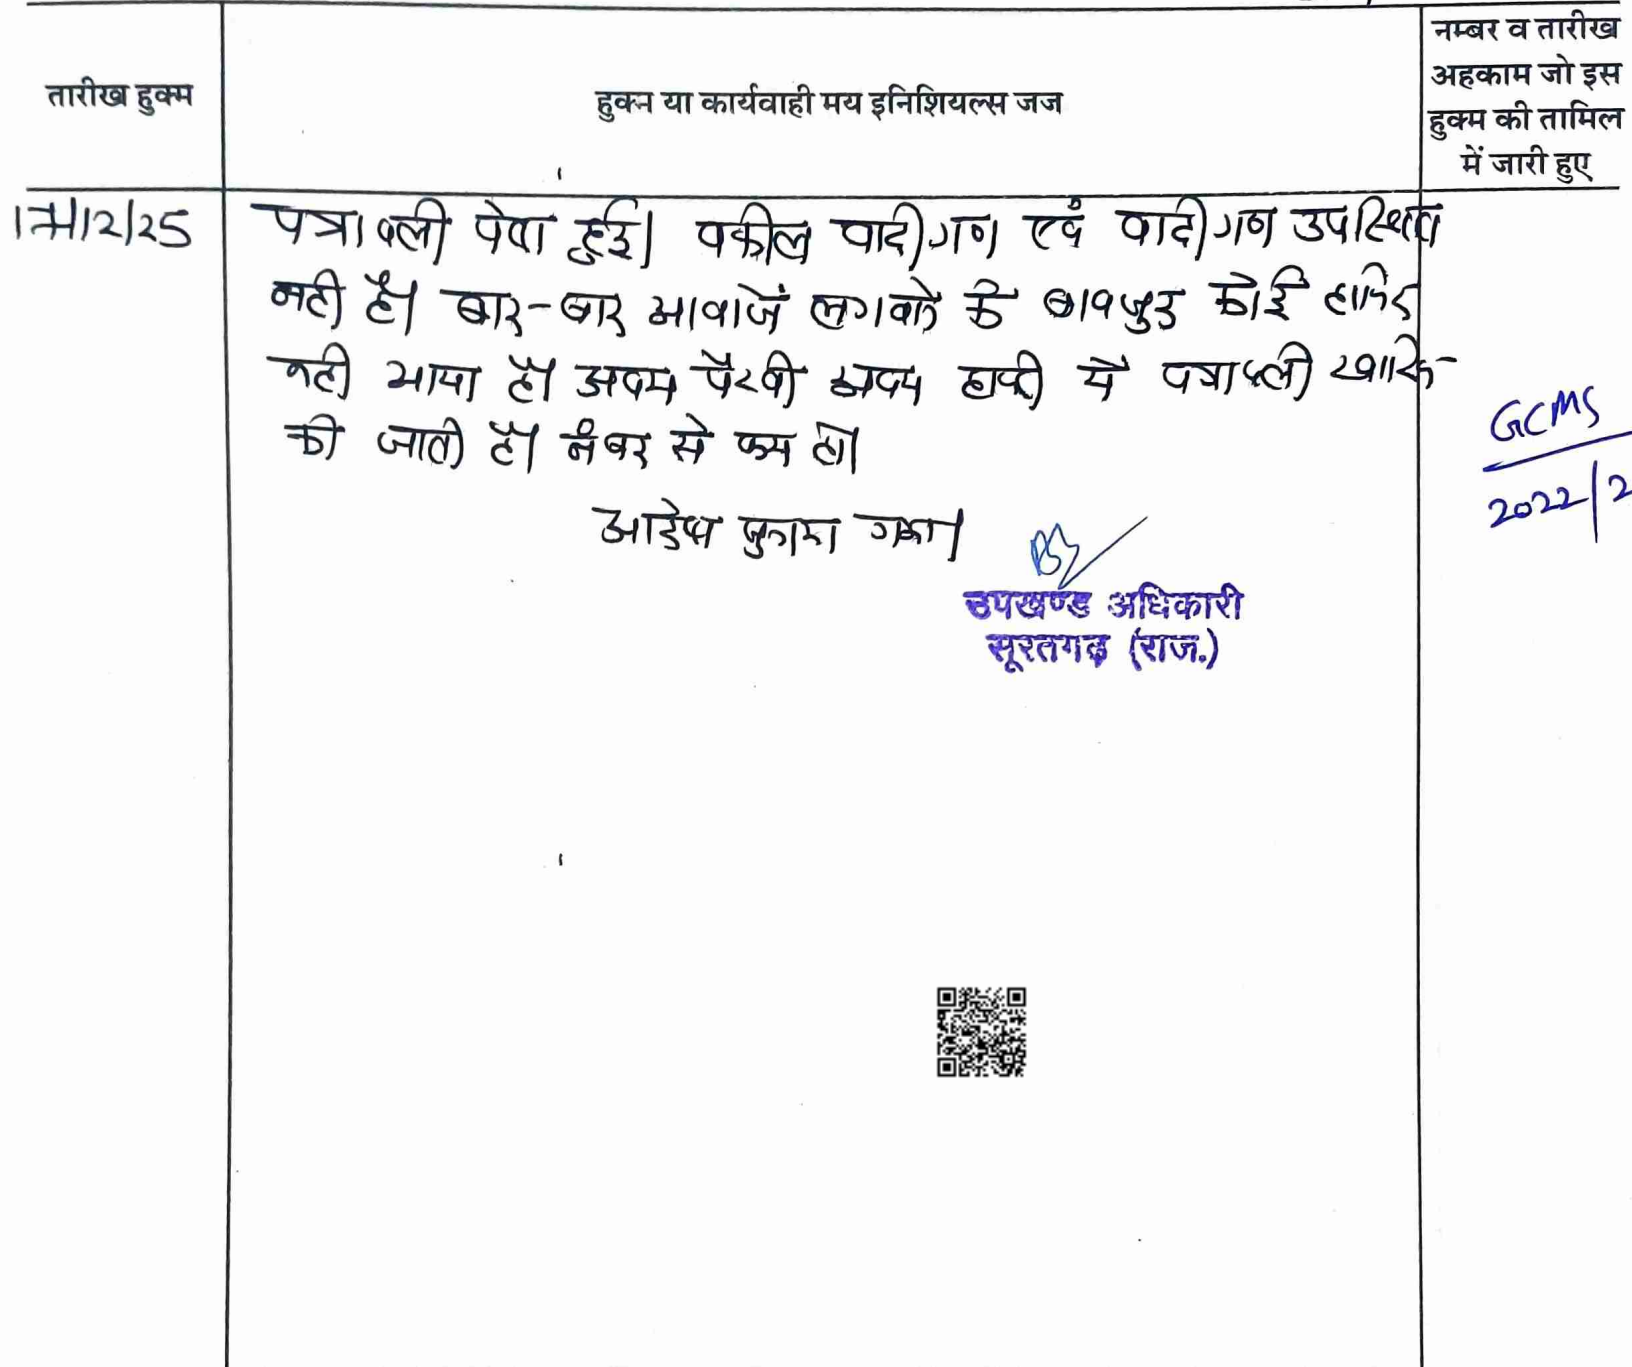 तारीख हुक्म
हुक्म या कार्यवाही मय इनिशियल्स जज
नम्बर व तारीख
अहकाम जो इस
हुक्म की तामिल
में जारी हुए
17/12/25
पत्रावली पेश हुई। वकील वादीगण एवं वादीगण उपस्थित
नही है। बार-बार आवाजें लगवाने के बावजुद कोई हाजिर
नही आया है। अदम पैरवी अदम हाजरी में पत्रावली खारिज
की जाती है। नंबर से कम हो।
आदेश सुनाया गया।
उपखण्ड अधिकारी
सूरतगढ़ (राज.)
GCMS
2022/2